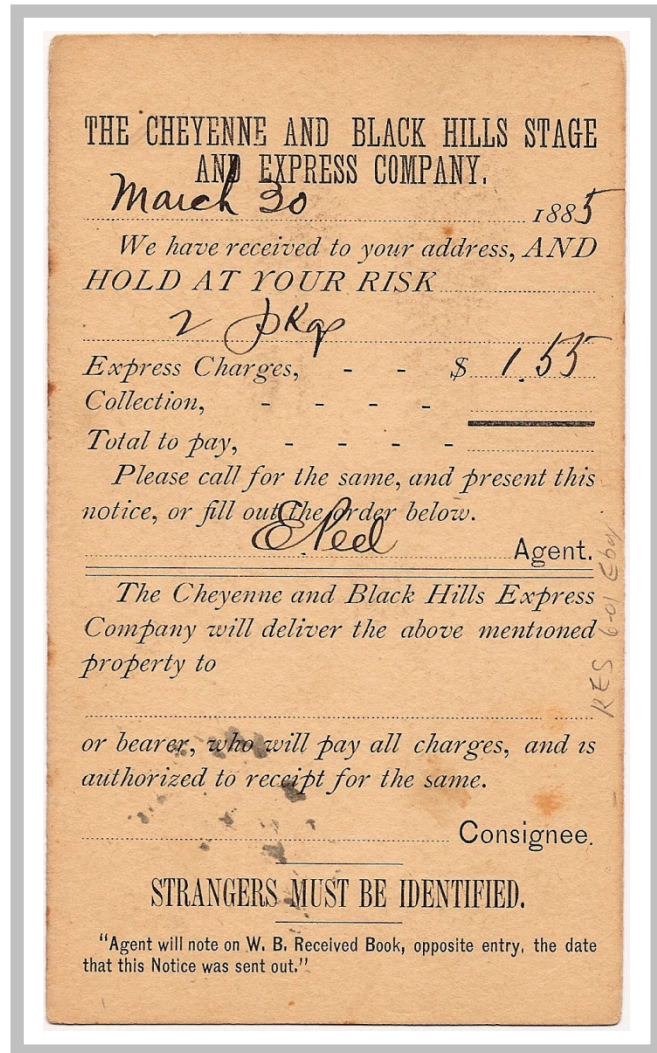 THE CHEYENNE AND BLACK HILLS STAGE
AND EXPRESS COMPANY.
March 30 1885
We have received to your address, AND
HOLD AT YOUR RISK
2 pkg
Express Charges, - - $ 1.55
Collection, - - - -
Total to pay, - - - -
Please call for the same, and present this
notice, or fill out the order below.
Agent.
The Cheyenne and Black Hills Express
Company will deliver the above mentioned
property to
or bearer, who will pay all charges, and is
authorized to receipt for the same.
Consignee.
STRANGERS MUST BE IDENTIFIED.
"Agent will note on W. B. Received Book, opposite entry, the date
that this Notice was sent out."
RES 6-01 Ebay